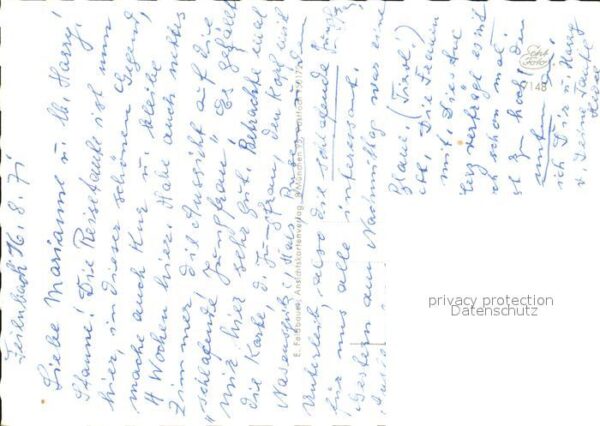 Feilnbach 16.8.71
Liebe Marianne u. lb. Harry!
Staune! Die Reisetante ist nun
hier, in dieser schönen Gegend,
mache auch Kur u. bleibe
4 Wochen hier. Habe auch nettes
Zimmer die Aussicht auf die
"schlafende Jungfrau" Es gefällt
mir hier sehr gut. Betrachte mal
die Karte, d. Jungfrau, den Kopf mit
Nasenspitze, Hals Busen u. den
Unterleib, also die schlafende
für uns, alle interessant.
Gestern am Nachmittag war eine
Blaue. (Tirol.)
Die Frauen
mit. Dies tut
Herz verträgt es nicht
ich schon mal
ist zu hoch! Den
unten auf.
ich Dir u. Harry
v. Deine Tante
E. Feldbauer, Ansichtskartenverlag, 8 München
Echt
Foto
7148
privacy protection
Datenschutz